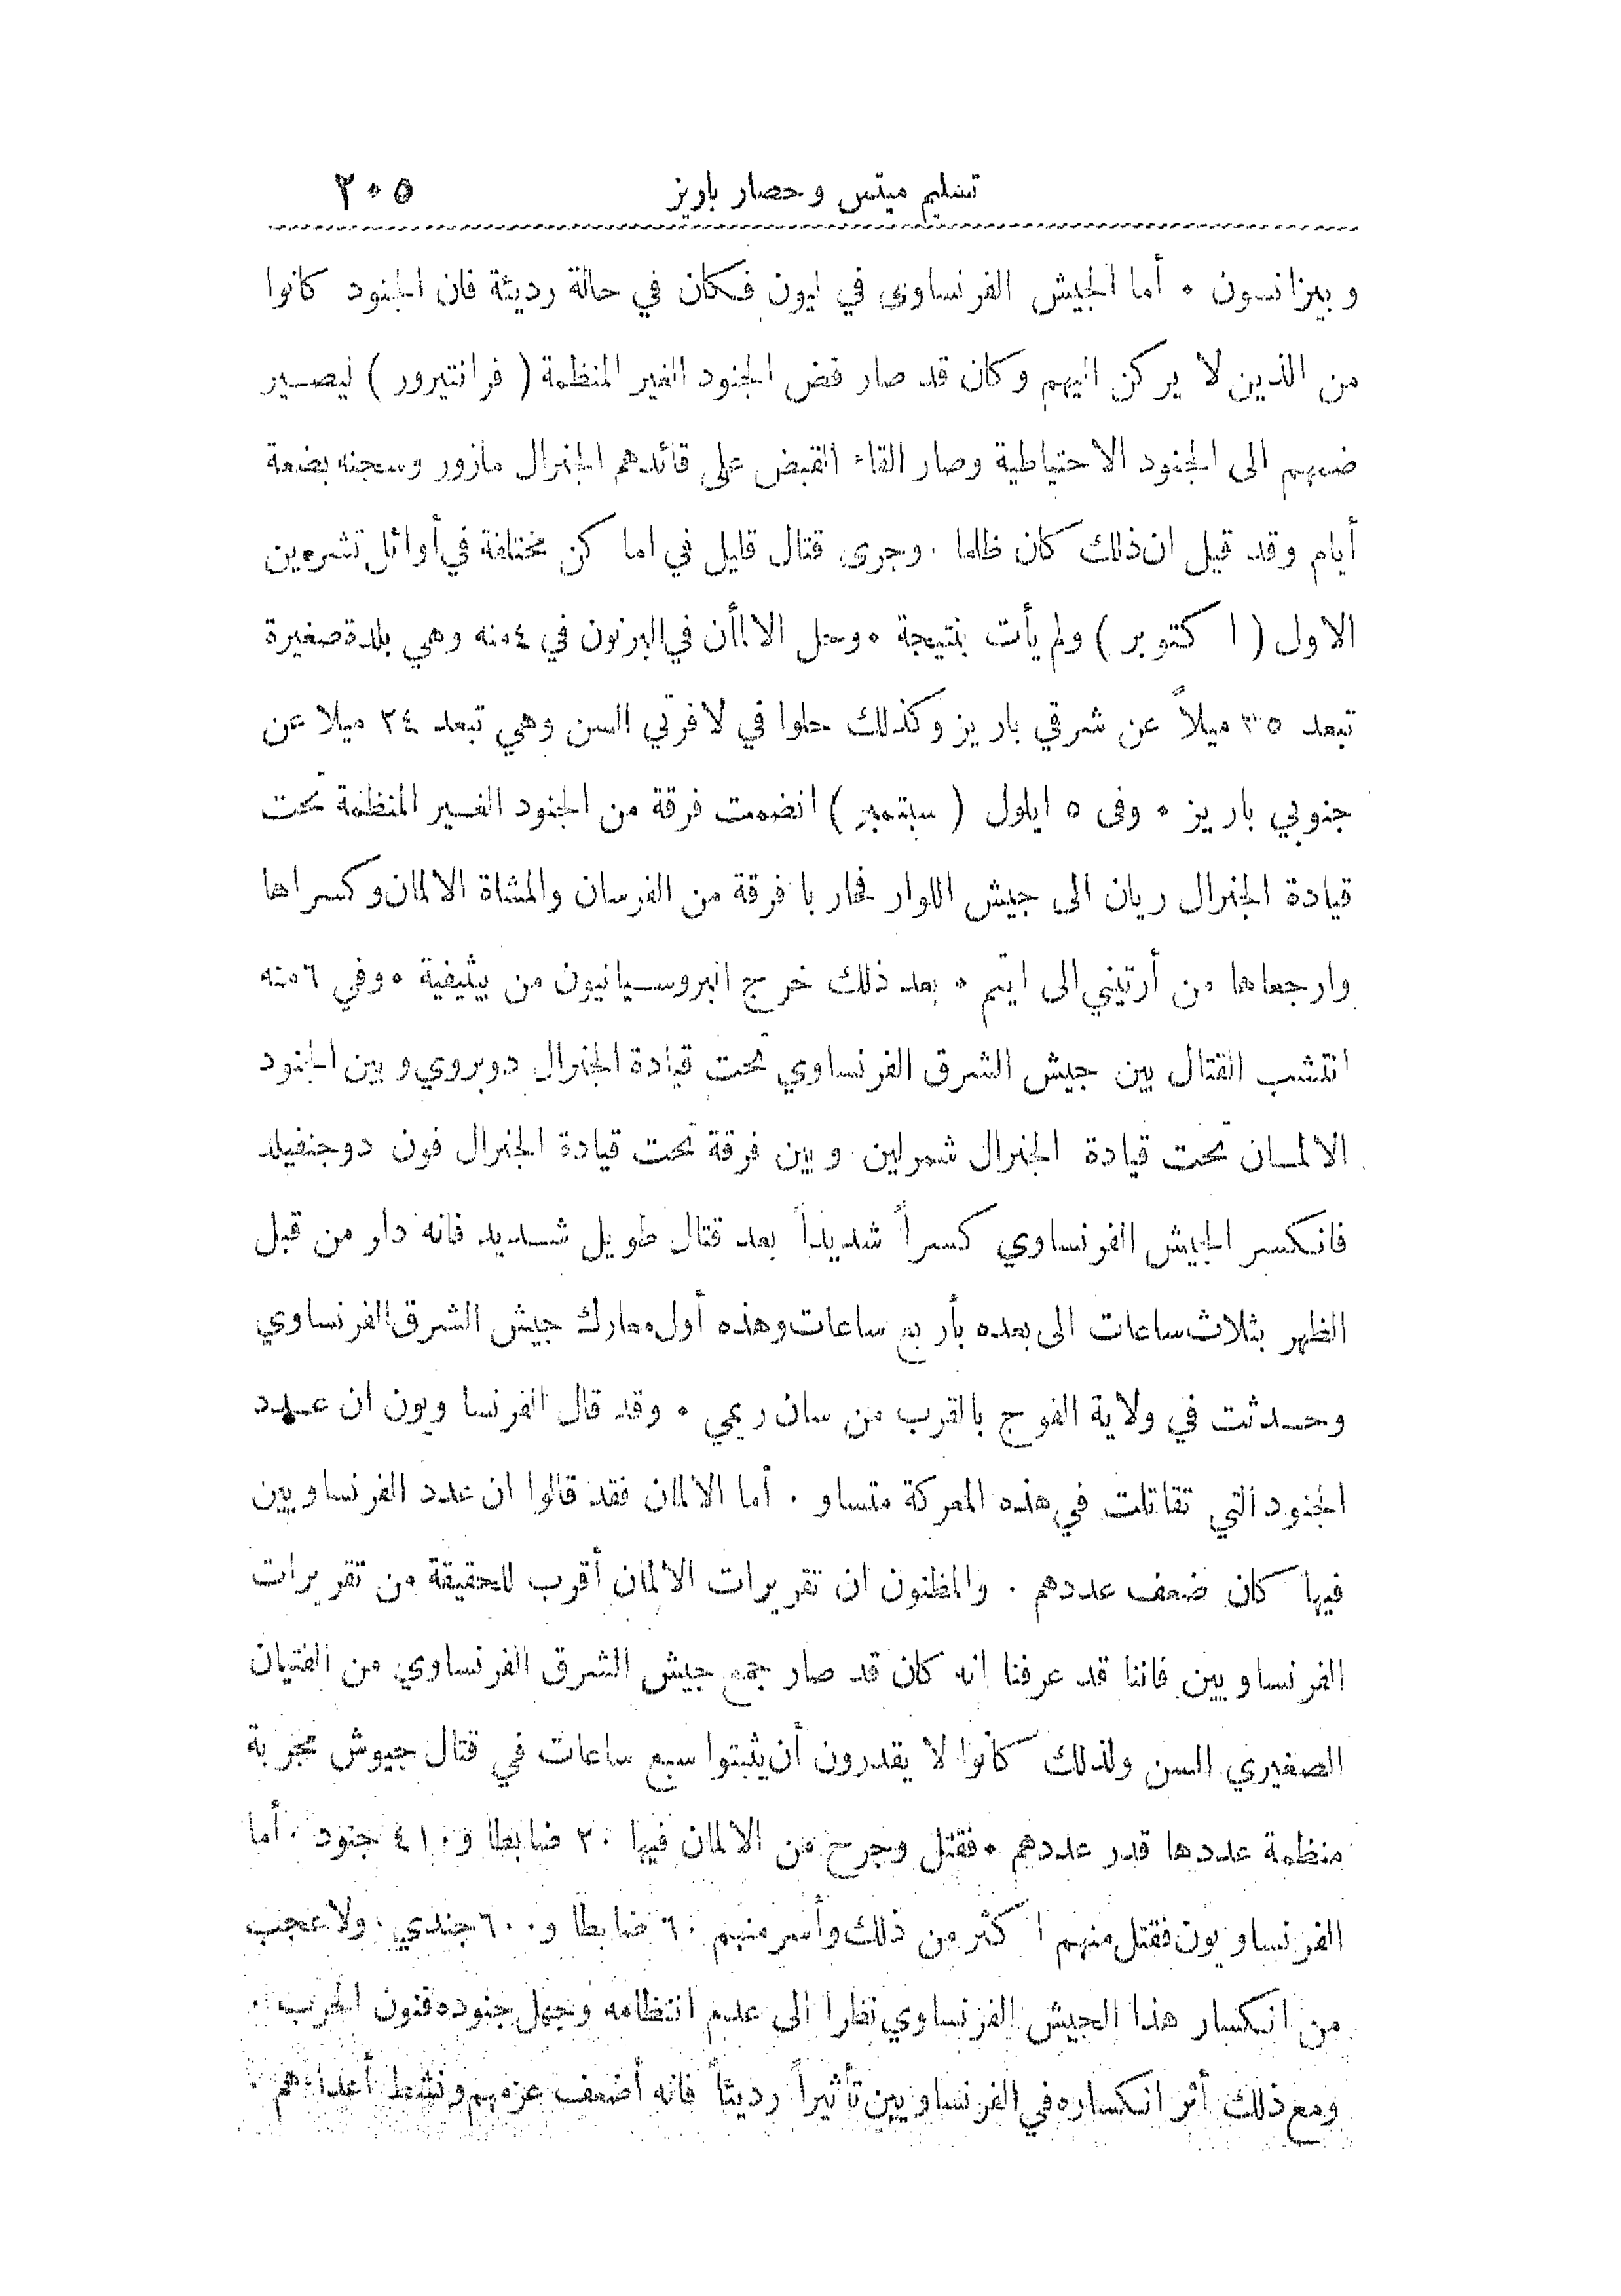 تسليم ميتس وحصار باريز ٢٠٥
وبيزانسون . أما الجيش الفرنساوى في ليون فكان في حالة رديئة فان الجنود كانوا
من الذين لا يركن اليهم وكان قد صار فض الجنود الغير المنظمة ( فرانتيرور ) ليصير
ضمهم الى الجنود الاحتياطية وصار القاء القبض على قائدهم الجنرال مازور وسجنه بضعة
أيام وقد قيل ان ذلك كان ظلما . وجرى قتال قليل في اماكن مختلفة في أوائل تشرين
الاول ( اكتوبر ) ولم يأت بنتيجة . وحل الالمان في البرنون في ٤ منه وهي بلدة صغيرة
تبعد ٣٥ ميلاً عن شرقي باريز وكذلك حلوا في لافرتي السن وهي تبعد ٢٤ ميلا عن
جنوبي باريز . وفى ٥ ايلول ( سبتمبر ) انضمت فرقة من الجنود الغير المنظمة تحت
قيادة الجنرال ريان الى جيش اللوار فحاربا فرقة من الفرسان والمشاة الالمان وكسراها
وارجعاها من أرتيني الى ايتم . بعد ذلك خرج البروسيانيون من بيثيفية . وفي ٦ منه
انتشب القتال بين جيش الشرق الفرنساوي تحت قيادة الجنرال دوبروي وبين الجنود
الالمان تحت قيادة الجنرال شمرلين وبين فرقة تحت قيادة الجنرال فون دوجنفيلد
فانكسر الجيش الفرنساوي كسراً شديداً بعد قتال طويل شديد فانه دار من قبل
الظهر بثلاث ساعات الى بعده بأربع ساعات وهذه أول معارك جيش الشرق الفرنساوي
وحدثت في ولاية الفوج بالقرب من سان ريمي . وقد قال الفرنساويون ان عدد
الجنود التي تقاتلت في هذه المعركة متساو . أما الالمان فقد قالوا ان عدد الفرنساويين
فيها كان ضعف عددهم . والمظنون ان تقريرات الالمان أقرب للحقيقة من تقريرات
الفرنساويين فاننا قد عرفنا انه كان قد صار جمع جيش الشرق الفرنساوي من الفتيان
الصغيري السن ولذلك كانوا لا يقدرون أن يثبتوا سبع ساعات في قتال جيوش مجربة
منظمة عددها قدر عددهم . فقتل وجرح من الالمان فيها ٢٠ ضابطا و٤١٠ جنود . أما
الفرنساويون فقتل منهم اكثر من ذلك وأسر منهم ٦٠ ضابطا و٦٠٠ جندي . ولا عجب
من انكسار هذا الجيش الفرنساوي نظرا الى عدم انتظامه وجهل جنوده فنون الحرب .
ومع ذلك أثر انكساره في الفرنساويين تأثيراً رديئاً فانه أضعف عزمهم ونشط أعداءهم .